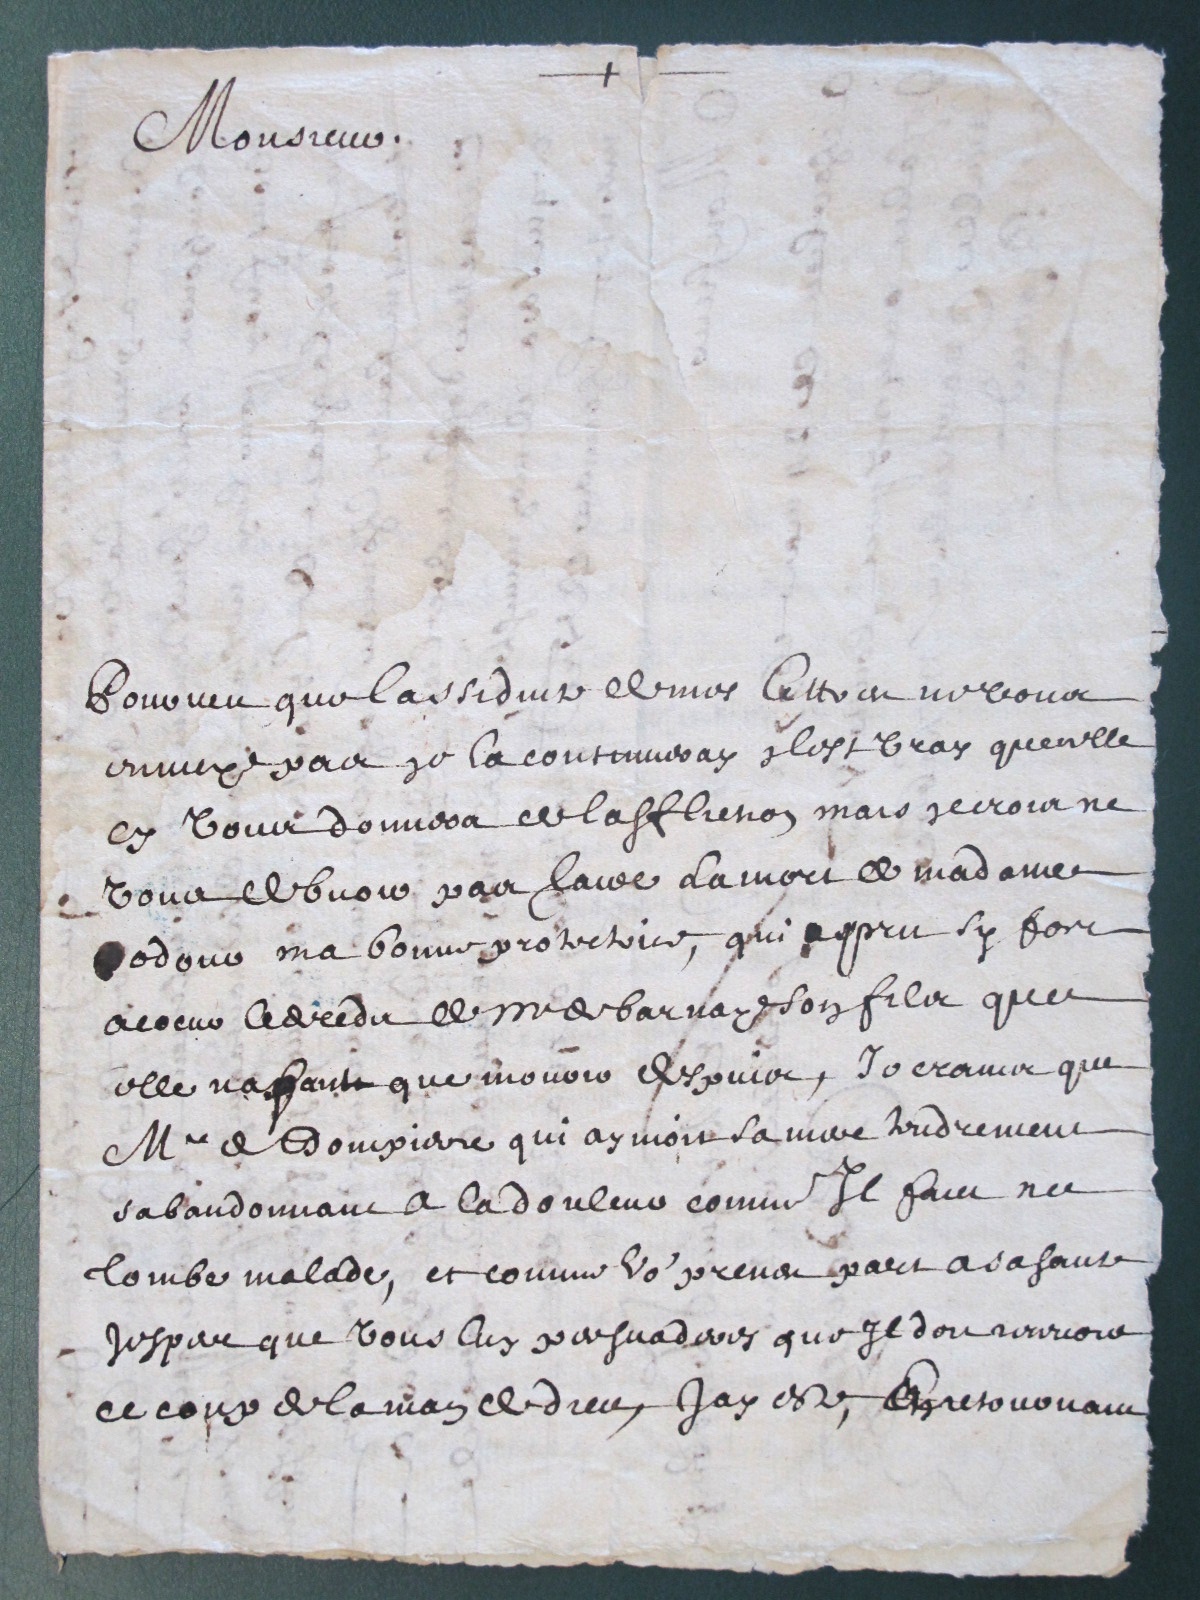 Monsieur.
Pourveu que lassiduite de mes lettres ne vous
enuuye pas je la continueray jl est vray que celle
cy vous donnera de laffliction mais je crois ne
vous debuoir pas taire la mort de madame
ma bonne protectrice, qui a apris sy fort
a coeur le deceds de Mr de barnay son fils que
elle na fait que mourir depuis, Je crains que
Mr de Dompierre qui aymoit sa mere tendrement
sabandonnant a la douleur comme Il fait ne
tombe malade, et comme vo' prenes part a sa sante
Jespere que vous luy persuaderes que Il doit recevoir
ce coup de la main de dieu, Jay este,